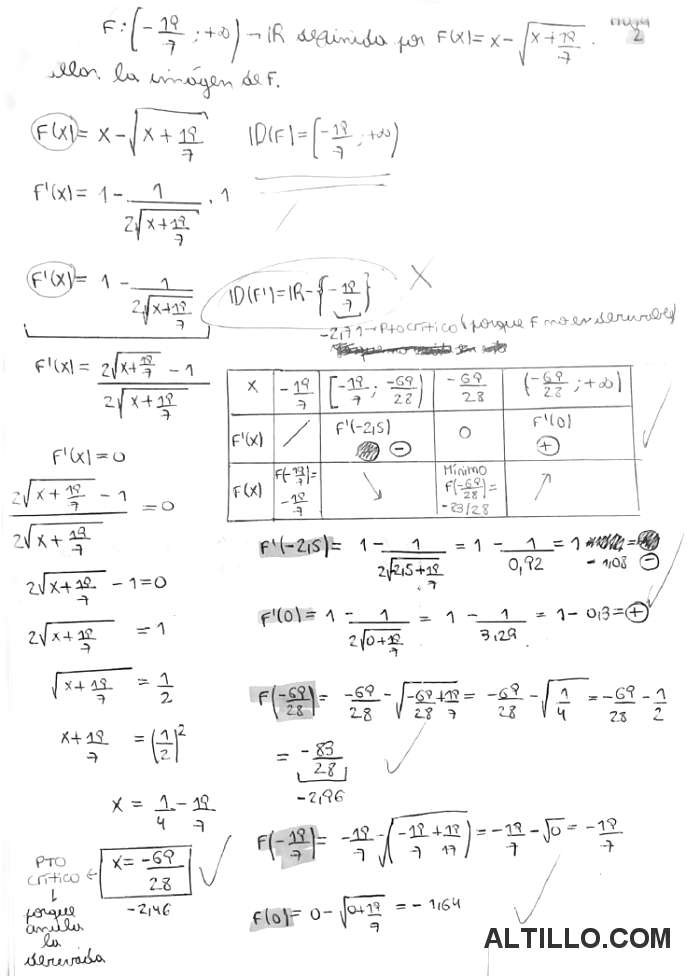 F: [-19/7 ; +∞) → IR definida por F(x) = x - √(x + 19/7) .
2
la imágen de F.
F(x) = x - √(x + 19/7) ID(F) = [-19/7 ; +∞)
F'(x) = 1 - 1/(2√(x + 19/7)) . 1
F'(x) = 1 - 1/(2√(x + 19/7)) ID(F') = IR - {-19/7} X
-2,71 → Pto crítico (porque F no es derivable)
F'(x) = (2√(x + 19/7) - 1)/(2√(x + 19/7))
X | -19/7 | [-19/7 ; -69/28) | -69/28 | (-69/28 ; +∞)
F'(x) | / | F'(-2,5) ⊖ | 0 | F'(0) ⊕
F(x) | F(-19/7) = -19/7 | ↘ | Mínimo F(-69/28) = -83/28 | ↗
F'(x) = 0
(2√(x + 19/7) - 1)/(2√(x + 19/7)) = 0
2√(x + 19/7) - 1 = 0
2√(x + 19/7) = 1
√(x + 19/7) = 1/2
x + 19/7 = (1/2)²
x = 1/4 - 19/7
x = -69/28 ✓
-2,46
PTO crítico ←
↓
porque anula la derivada
F'(-2,5) = 1 - 1/(2√(-2,5 + 19/7)) = 1 - 1/0,92 = 1 - 1,08 = ⊖
F'(0) = 1 - 1/(2√(0 + 19/7)) = 1 - 1/3,29 = 1 - 0,3 = ⊕
F(-69/28) = -69/28 - √(-69/28 + 19/7) = -69/28 - √(1/4) = -69/28 - 1/2
= -83/28 ✓
-2,96
F(-19/7) = -19/7 - √(-19/7 + 19/17) = -19/7 - √0 = -19/7
F(0) = 0 - √(0 + 19/7) = -1,64 ✓
ALTILLO.COM